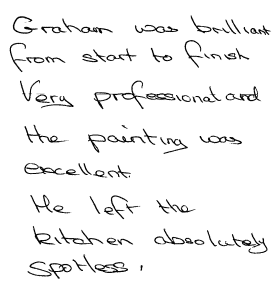 Graham was brilliant
from start to finish
Very professional and
the painting was
excellent.
He left the
kitchen absolutely
spotless.